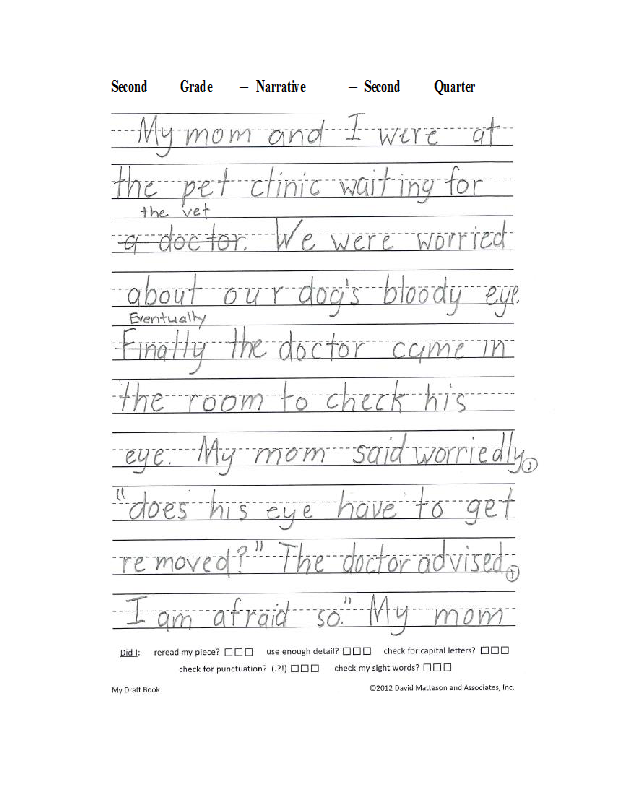 Second Grade – Narrative – Second Quarter
My mom and I were at
the pet clinic waiting for
the vet
a doctor. We were worried
about our dog's bloody eye.
Eventually
Finally the doctor came in
the room to check his
eye. My mom said worriedly,
"does his eye have to get
removed?" The doctor advised,
I am afraid so." My mom
Did I: reread my piece? ☐☐☐ use enough detail? ☐☐☐ check for capital letters? ☐☐☐
check for punctuation? (.?!) ☐☐☐ check my sight words? ☐☐☐
My Draft Book ©2012 David Matteson and Associates, Inc.